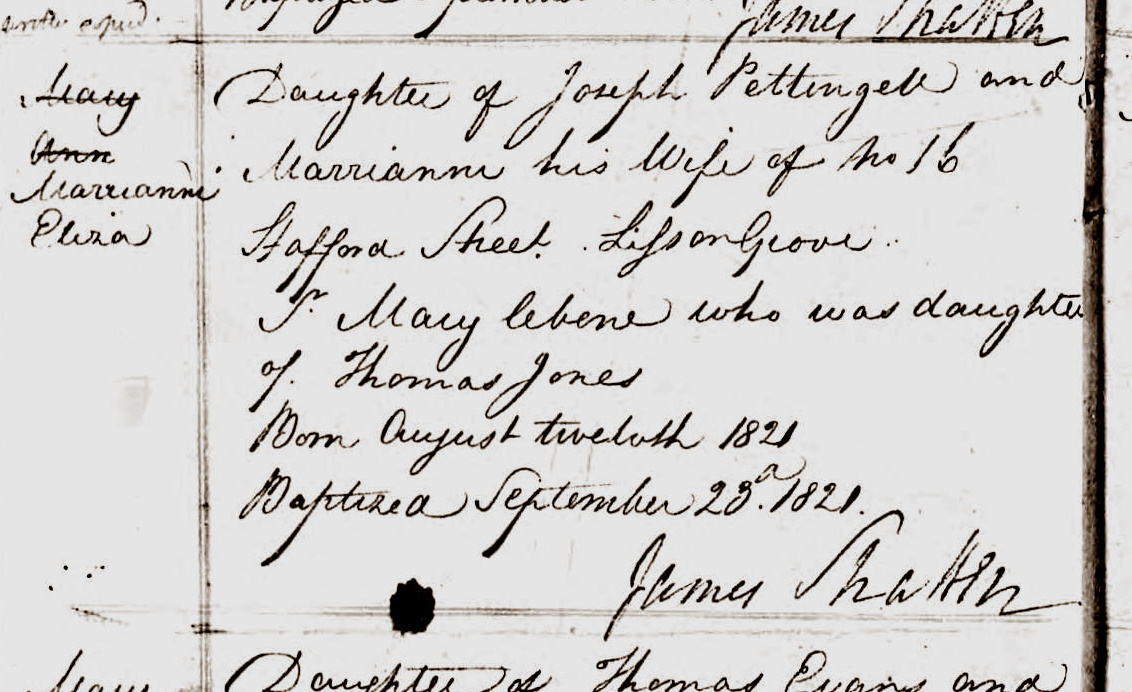 James Shatten
Mary
Ann
Marrianni
Eliza
Daughter of Joseph Pettingell and
Marrianni his Wife of No 16
Stafford Street. Lisson Grove
Mary lebene who was daughter
of. Thomas Jones
Born August twelvth 1821
Baptized September 23d. 1821.
James Shatten
Mary
Daughter of Thomas Evans and